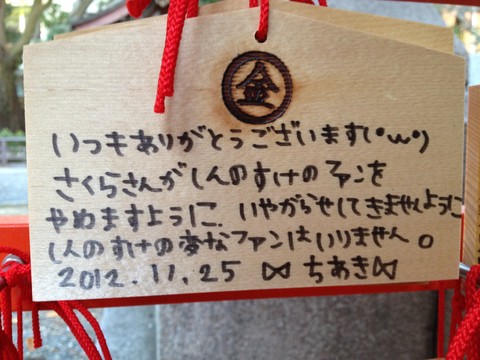 金
いつもありがとうございます(•ω•)
さくらさんがしんのすけのファンを
やめますように、いやがらせしてきませんように
しんのすけの変なファンはいりません。
2012.11.25 ⋈ ちあき⋈